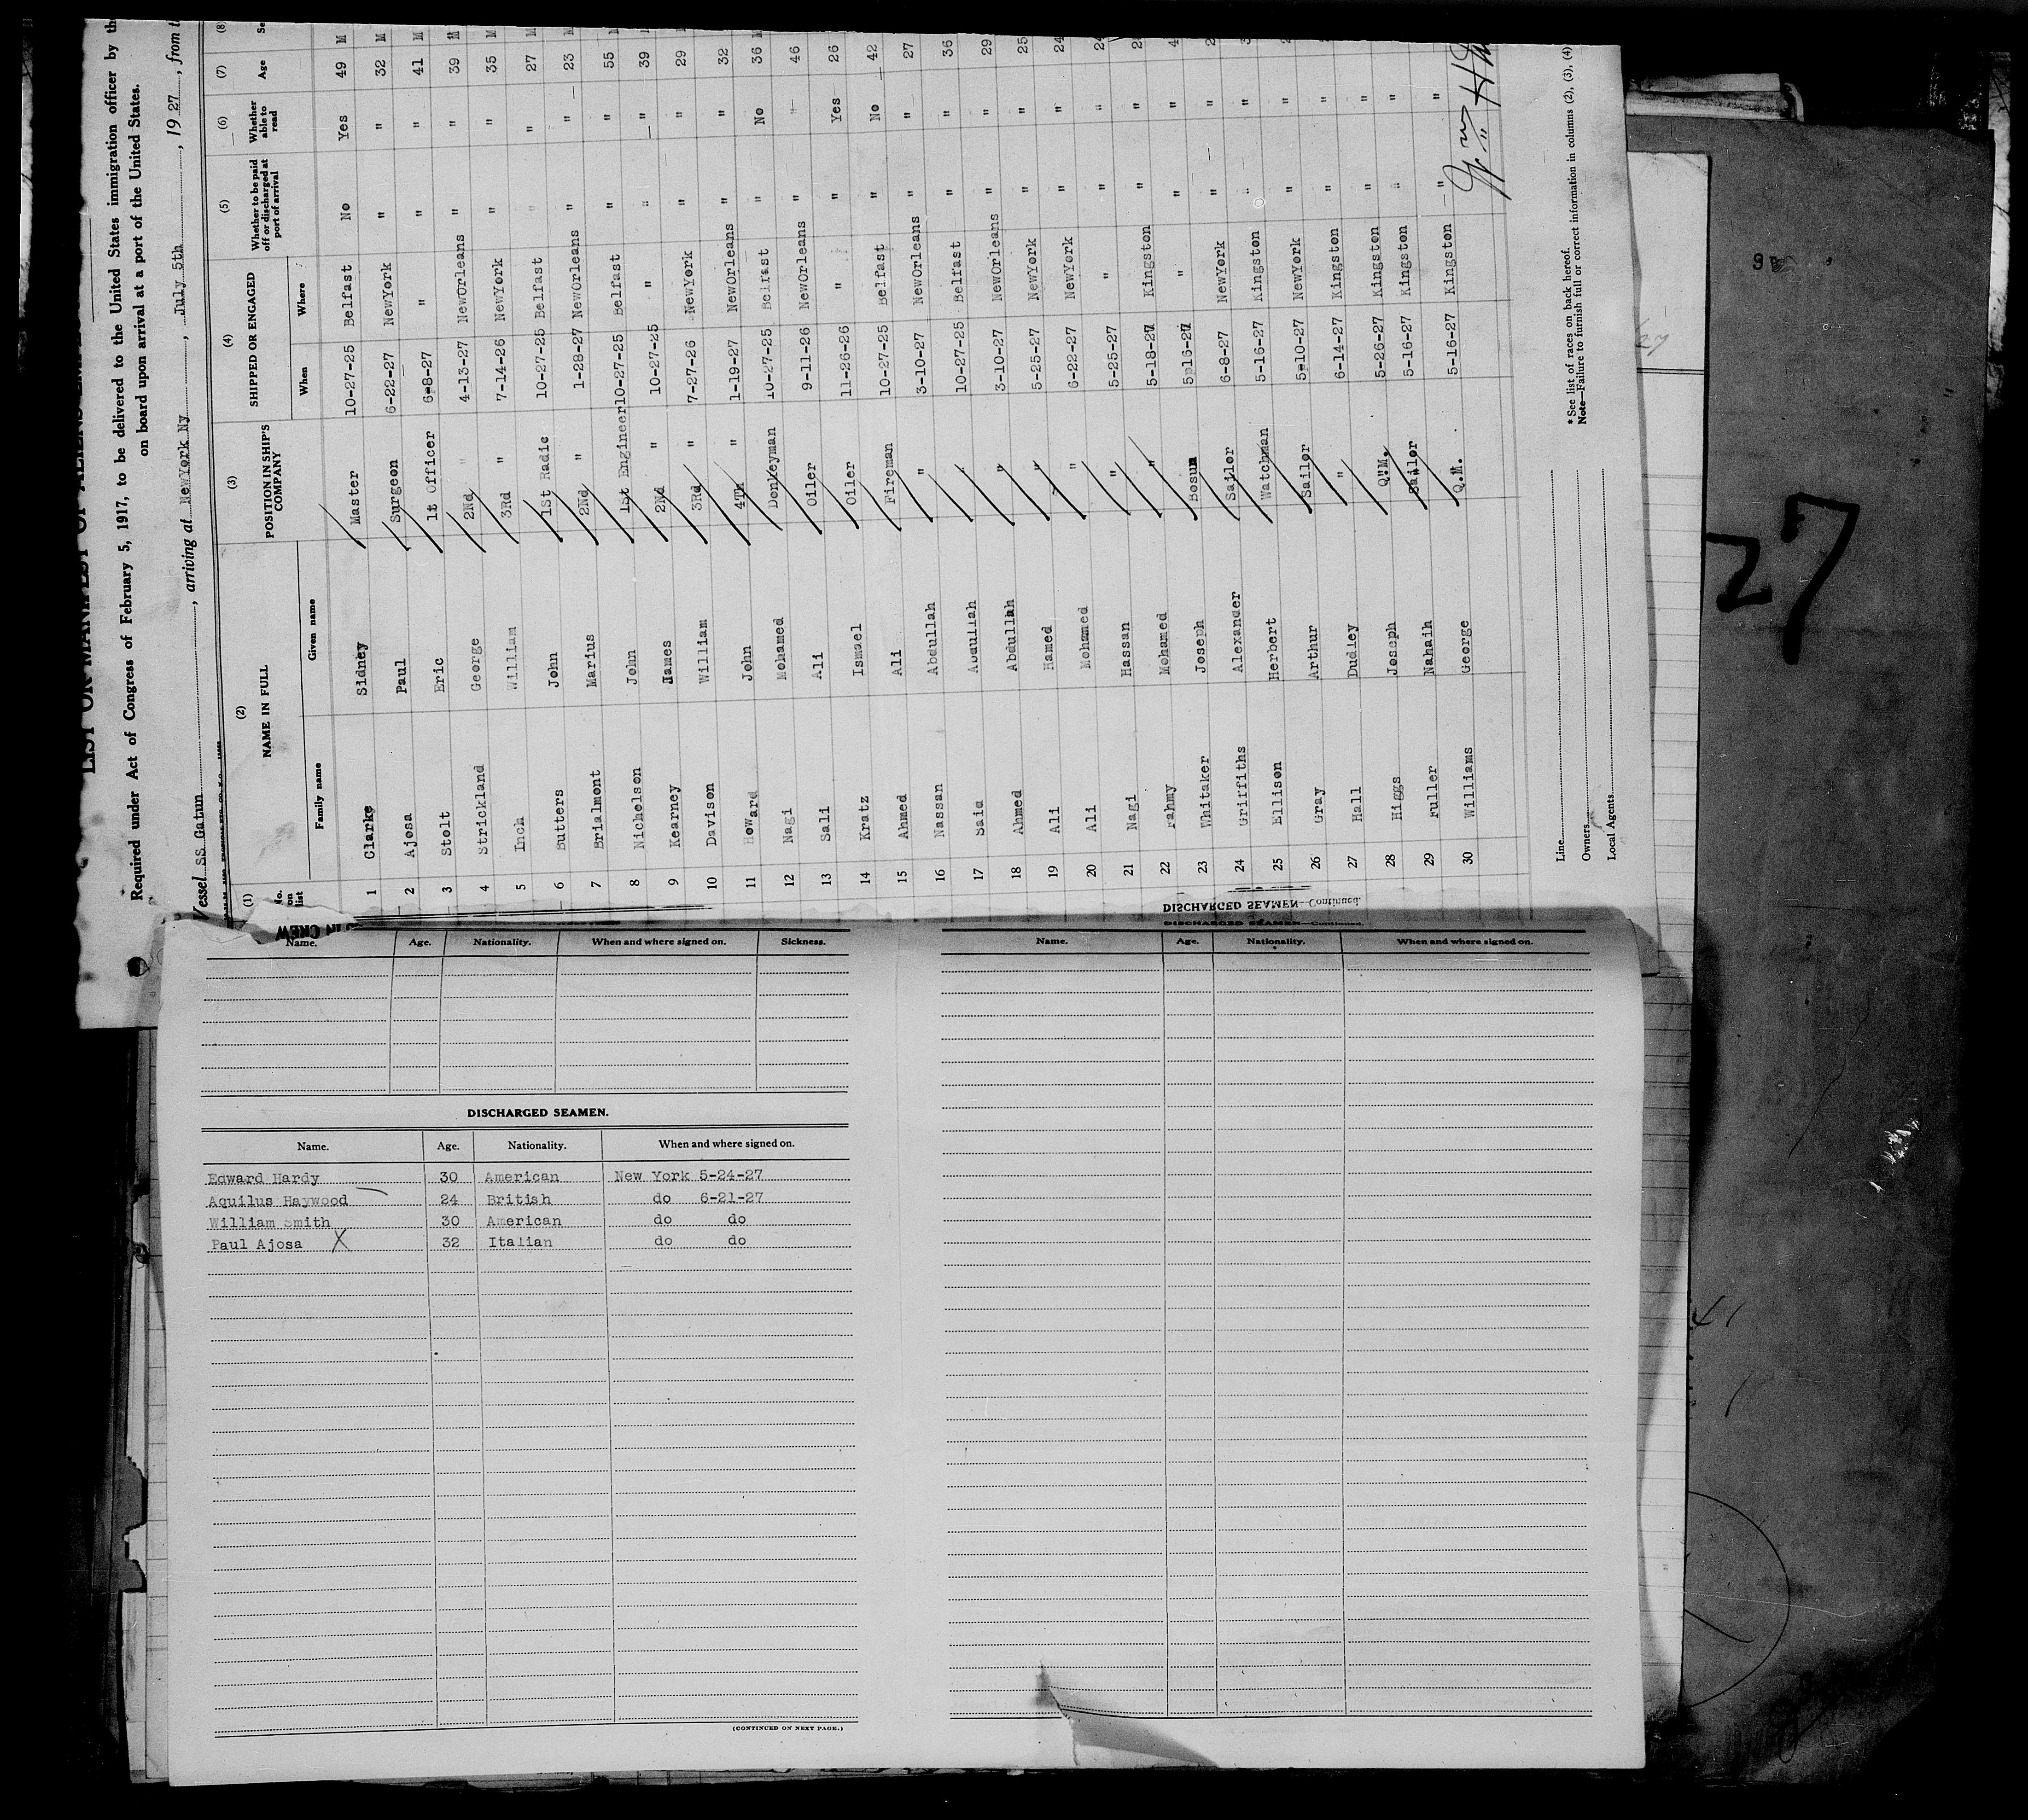 LIST OR MANIFEST OF ALIENS
Required under Act of Congress of February 5, 1917, to be delivered to the United States immigration officer by the
on board upon arrival at a port of the United States.
Vessel SS Gatun, arriving at NewYork Ny, July 5th, 1927, from
(1) (2) (3) (4) (5) (6) (7) (8)
No. on list NAME IN FULL POSITION IN SHIP'S COMPANY SHIPPED OR ENGAGED Whether to be paid off or discharged at port of arrival Whether able to read Age
Family name Given name When Where
1 Clarke Sidney Master 10-27-25 Belfast No Yes 49 M
2 Ajosa Paul Surgeon 6-22-27 NewYork " " 32 M
3 Stolt Eric 1t Officer 6-8-27 " " " 41 M
4 Strickland George 2Nd " 4-13-27 NewOrleans " " 39 M
5 Inch William 3Rd " 7-14-26 NewYork " " 35 M
6 Butters John 1St Radio 10-27-25 Belfast " " 27 M
7 Brialmont Marius 2Nd " 1-28-27 NewOrleans " " 23 M
8 Nicholson John 1St Engineer 10-27-25 Belfast " " 55 M
9 Kearney James 2Nd " 10-27-25 " " " 39
10 Davison William 3Rd " 7-27-26 NewYork " " 29
11 Howard John 4Th " 1-19-27 NewOrleans " " 32
12 Nagi Mohamed Donkeyman 10-27-25 Belfast " No 36 M
13 Sali Ali Oiler 9-11-26 NewOrleans " " 46
14 Kratz Ismael Oiler 11-26-26 " " Yes 26 M
15 Ahmed Ali Fireman 10-27-25 Belfast " No 42
16 Nassan Abdullah " 3-10-27 NewOrleans " " 27
17 Said Abdullah " 10-27-25 Belfast " " 36
18 Ahmed Abdullah " 3-10-27 NewOrleans " " 29
19 Ali Hamed " 5-25-27 NewYork " " 25
20 Ali Mohamed " 6-22-27 NewYork " " 24
21 Nagi Hassan " 5-25-27 " " "
22 Fahmy Mohamed " 5-18-27 Kingston " "
23 Whitaker Joseph Bosun 5-16-27 " " "
24 Griffiths Alexander Sailor 6-8-27 NewYork " "
25 Ellison Herbert Watchman 5-16-27 Kingston " "
26 Gray Arthur Sailor 5-10-27 NewYork " "
27 Hall Dudley " 6-14-27 Kingston " "
28 Higgs Joseph Q.M. 5-26-27 Kingston " "
29 Fuller Nahaih Sailor 5-16-27 Kingston " "
30 Williams George Q.M. 5-16-27 Kingston " "
Line
Owners
Local Agents
* See list of races on back hereof.
Note—Failure to furnish full or correct information in columns (2), (3), (4)
IN CREW
DISCHARGED SEAMEN—Continued.
Name. Age. Nationality. When and where signed on. Sickness.
DISCHARGED SEAMEN.
Name. Age. Nationality. When and where signed on.
Edward Hardy 30 American New York 5-24-27
Aquilus Haywood 24 British do 6-21-27
William Smith 30 American do do
Paul Ajosa X 32 Italian do do
(CONTINUED ON NEXT PAGE.)
DISCHARGED SEAMEN—Continued.
Name. Age. Nationality. When and where signed on.
27